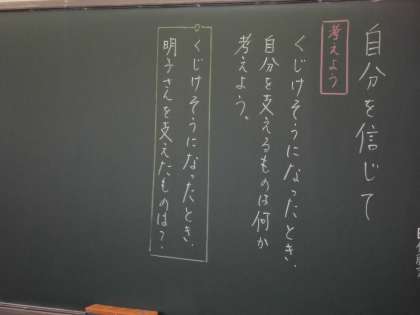 自分を信じて
考えよう
くじけそうになったとき、
自分を支えるものは何か
考えよう。
くじけそうになったとき、
明子さんを支えたものは？